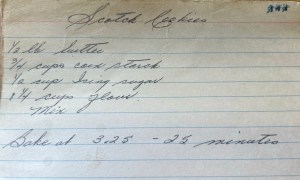 Scotch Cookies
½ lb butter
3/4 cups corn starch
½ cup Icing sugar
1 ¼ cups flour
Mix
Bake at 325 - 25 minutes